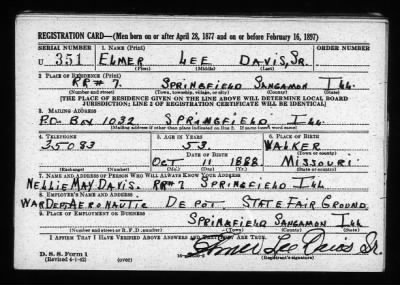 REGISTRATION CARD—(Men born on or after April 28, 1877 and on or before February 16, 1897)
SERIAL NUMBER 1. NAME (Print) ORDER NUMBER
U 351 ELMER LEE DAVIS, SR.
(First) (Middle) (Last)
2. PLACE OF RESIDENCE (Print)
RR# 7. SPRINGFIELD SANGAMON ILL.
(Number and street) (Town, township, village, or city) (County) (State)
[THE PLACE OF RESIDENCE GIVEN ON THE LINE ABOVE WILL DETERMINE LOCAL BOARD
JURISDICTION; LINE 2 OF REGISTRATION CERTIFICATE WILL BE IDENTICAL]
3. MAILING ADDRESS
P.O. BOX 1032 SPRINGFIELD ILL
[Mailing address if other than place indicated on line 2. If same insert word same]
4. TELEPHONE 5. AGE IN YEARS 6. PLACE OF BIRTH
35083 53. WALKER
DATE OF BIRTH (Town or county)
OCT 11 1888. MISSOURI
(Exchange) (Number) (Mo.) (Day) (Yr.) (State or country)
7. NAME AND ADDRESS OF PERSON WHO WILL ALWAYS KNOW YOUR ADDRESS
NELLIE MAY DAVIS. RR#7 SPRINGFIELD ILL
8. EMPLOYER'S NAME AND ADDRESS
WAR DEPT AERONAUTIC DEPOT STATE FAIR GROUND
9. PLACE OF EMPLOYMENT OR BUSINESS
SPRINGFIELD SANGAMON ILL
(Number and street or R. F. D. number) (Town) (County) (State)
I AFFIRM THAT I HAVE VERIFIED ABOVE ANSWERS AND THAT THEY ARE TRUE.
D. S. S. Form 1
(Revised 4-1-42) (over) Elmer Lee Davis Sr.
(Registrant's signature)